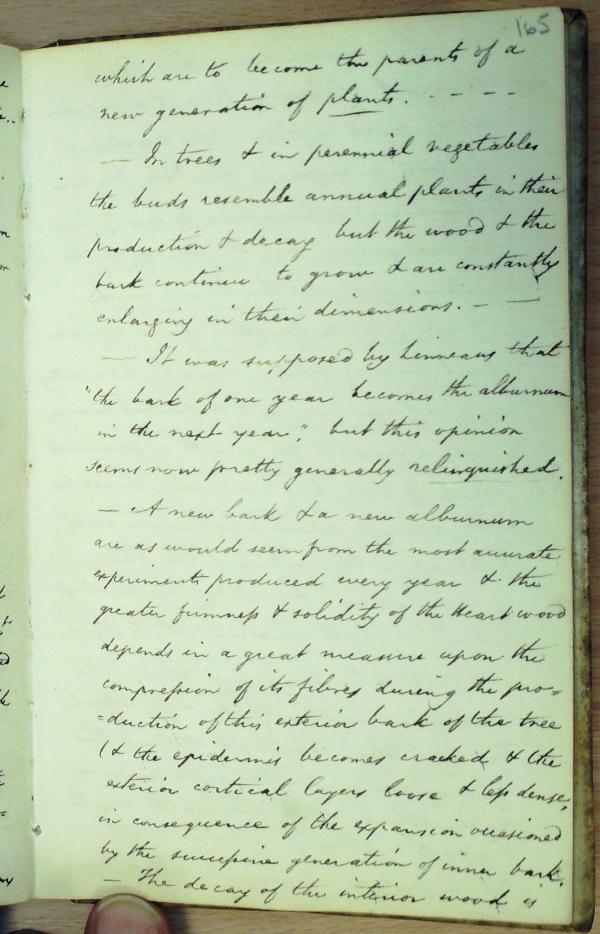 165
which are to become the parents of a
new generation of plants. - - - -
— In trees & in perennial vegetables
the buds resemble annual plants in their
production & decay but the wood & the
bark continue to grow & are constantly
enlarging in their dimensions. — —
— It was supposed by Linneaus that
"the bark of one year becomes the alburnum
in the next year", but this opinion
seems now pretty generally relinquished.
— A new bark & a new alburnum
are as would seem from the most accurate
experiments produced every year & the
greater firmness & solidity of the Heart wood
depends in a great measure upon the
compression of its fibres during the pro=
=duction of this exterior bark of the tree
(& the epidermis becomes cracked & the
exterior cortical layers loose & less dense,
in consequence of the expansion occasioned
by the successive generation of inner bark.
— The decay of the interior wood is